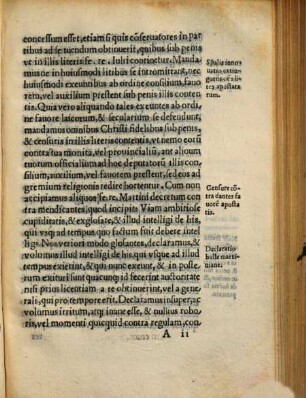 concessum esset, etiam si quis cõseruatores in par
tibus ad se tuendum obtinuerit, quibus sub penis
vt in illis literis se. re. Iulij continetur. Manda
mus ne huiusmodi negocijs se intromittant, nec
huiusmodi exeuntibus ab ordine, consilium, fauo
rem, vel auxilium prestent sub penis illis conten
tis. Quia vero aliquando tales exeuntes ab ordi,
ne fauore laicorum, & secularium se defendunt,
mandamus omnibus Christi fidelibus sub penis,
& censuris in illis literis contentis, vt nemo eorũ
contra actus monita, vel prouincialiũ, aut aliorum
eorum officialium ad hoc deputatorũ illis consi
lium, auxilium, vel fauorem prestent, sed eos ad
gremium religionis redire hortentur. Cum non
accipiamus aliquos fe. re. Martini decretum con
tra mendicantes, quod incipit: Viam ambitiosæ
cupiditatis, & exglosare, & illud intelligi de his,
qui vsq; ad tempus quo factum fuit debere intel
ligi: Nos veriori modo glosantes, declaramus, &
volumus illud intelligi de his, qui vsq; ad tempus
dicti decreti exierunt, & qui nunc exeunt, & in poste
rum exituri sunt quocunq; id fecerint auctoritate
nisi prius licentiam a te obtinuerint, vel a gene
rali, qui pro tempore erit. Declaramus insuper, ac
volumus irritum, atq; inane esse, & nullius robo
ris, vel momenti quicquid contra regulam, con
A ij
Censure cõ
tra dantes fa
uorẽ aposta
tis.
Declaratio
bulle marti
niane.